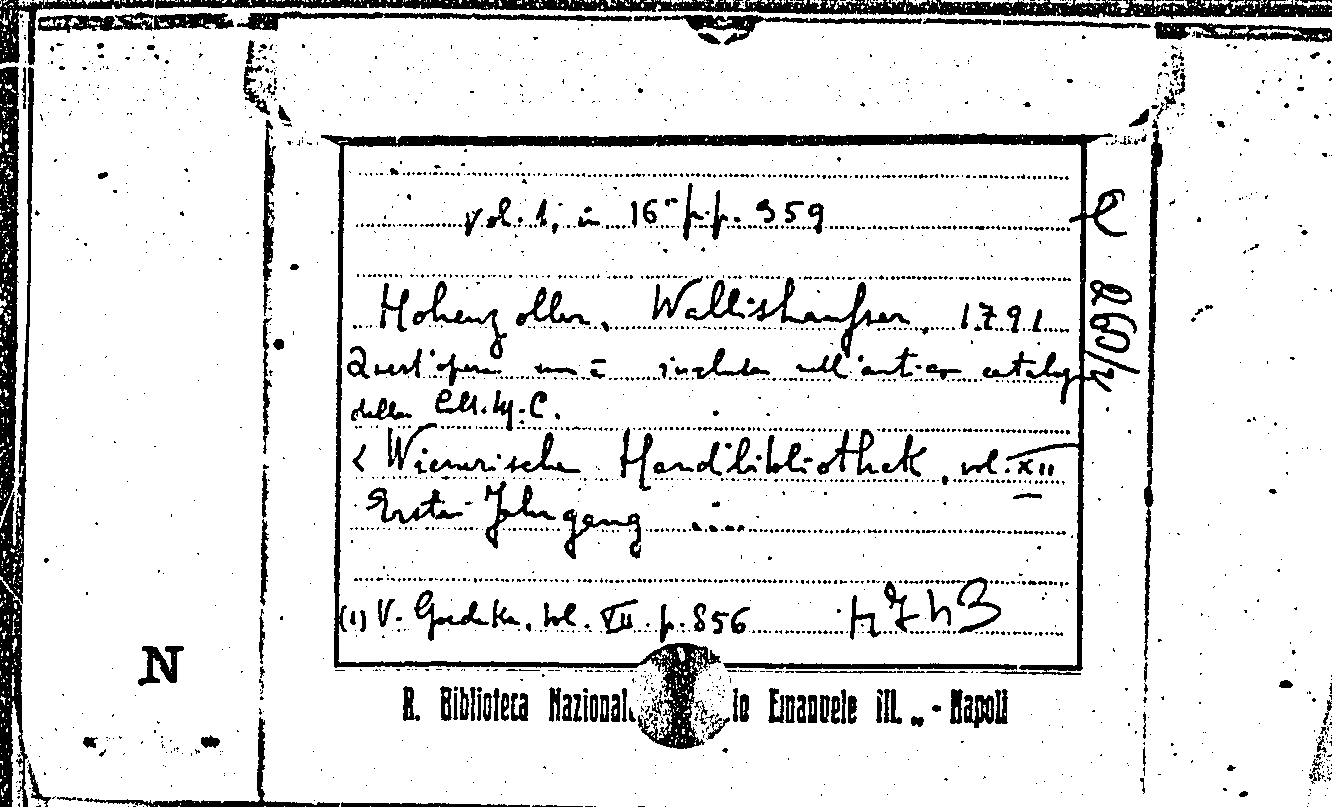 vol. 1, in 16° pp. 359
Hohenzollern, Wallishausser, 1791
Quest'opera non è inclusa nell'antico catalogo
della Coll. M. C.
< Wienerische Handbibliothek, vol. XII
Erster Jahrgang ....
(1) V. Goedeke, vol. VII. p. 856
R. Biblioteca Nazional le Emanuele III. „ - Napoli
N